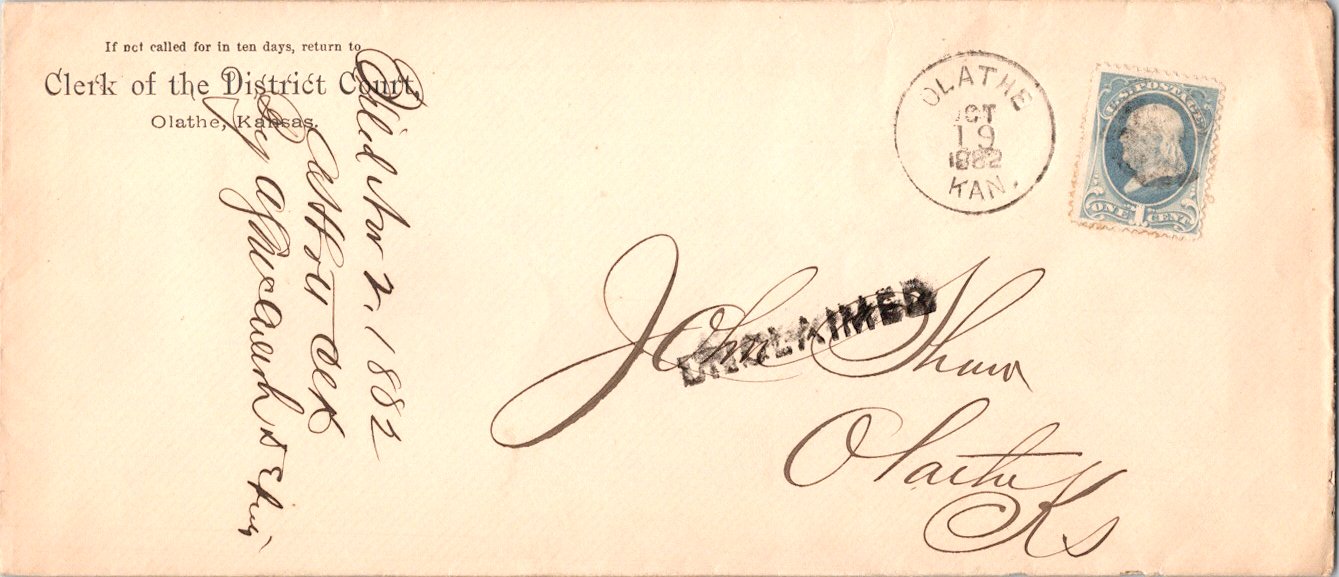 If not called for in ten days, return to
Clerk of the District Court,
Olathe, Kansas.
Filed Nov 2, 1882
By
OLATHE
OCT
19
1882
KAN.
U.S. POSTAGE
ONE 1 CENT
UNCLAIMED
John Shaw
Olathe
Ks